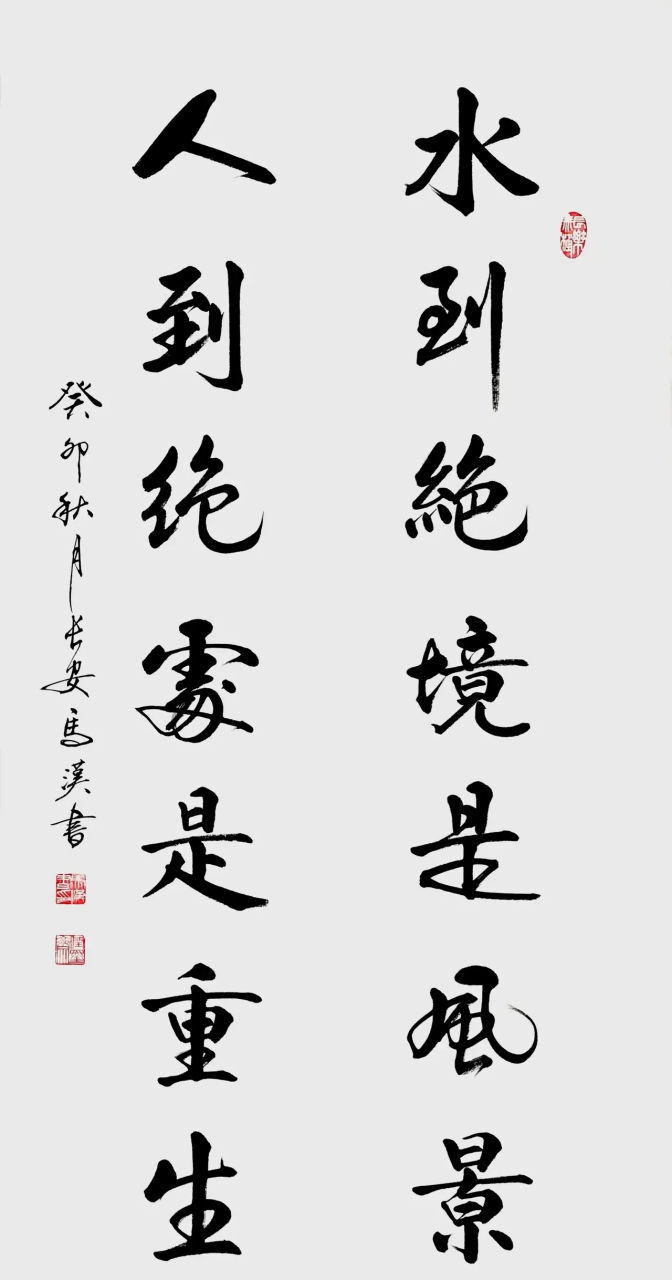 水到絕境是風景
人到绝處是重生
癸卯秋月长安馬漢書